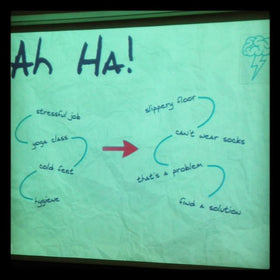 Ah Ha!
stressful job
yoga class
cold feet
hygiene
slippery floor
can't wear socks
that's a problem
find a solution